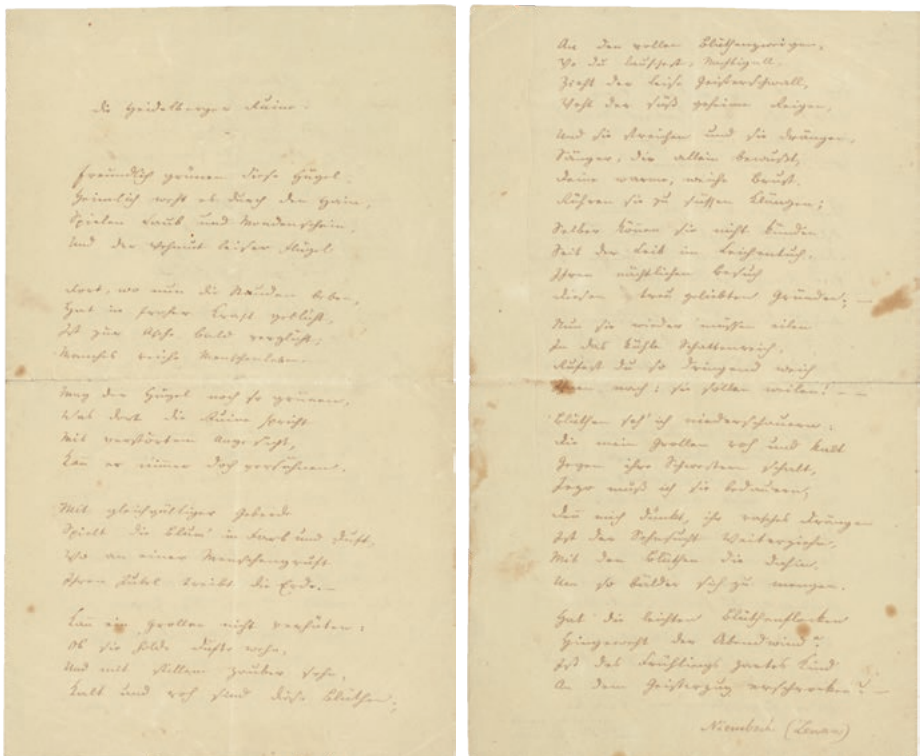 Die Heidelberger Ruine.
Freundlich grünen diese Hügel,
Heimlich weht es durch den Hain,
Spielen Laub und Mondenschein,
Und der Wehmut leiser Flügel.
Dort, wo nun die Stauden beben,
Hat in froher Kraft geblüht,
Ist zur Asche bald verglüht,
Manches reiche Menschenleben.
Mag der Hügel noch so grünen,
Was dort die Ruine spricht
Mit verstörtem Angesicht,
Kan̄ er nimmer doch versühnen.
Mit gleichgültiger Geberde
Spielt die Blum' in Farb und Duft,
Wo an einer Menschengruft
Ihren Jubel treibt die Erde. —
Kan̄ mein Grollen nicht verhüten:
Ob sie holde Düfte wehn,
Und mit stillem Zauber sehn,
Kalt und roh sind diese Blüthen;
An den vollen Blüthenzweigen,
Wo du lauschest, Nachtigall,
Zieht der leise Geisterschwall,
Weht der süß geheime Reigen,
Und sie streichen und sie drängen,
Sänger, dir allein bewußt,
Deine warme, weiche Brust,
Rühren sie zu süssen Klängen;
Selber kön̄en sie nicht künden
Seit der Leib im Leichentuch,
Ihren nächtlichen Besuch
Diesen treu geliebten Gründen; —
Nun sie wieder müssen eilen
In das kühle Schattenreich,
Rufest du so dringend weich
Ihnen nach: sie sollen weilen! — —
Blüthen seh' ich niederschauern;
Die mein Grollen roh und kalt
Gegen ihre Schwestern schalt,
Jezo muß ich sie bedauern;
Den̄ mich dünkt, ihr rasches Drängen
Ist der Sehnsucht Weiterziehn,
Mit den Blüthen die dahin,
Um so bälder sich zu mengen.
Hat die leichten Blüthenflocken
Hingeweht der Abendwind?
Ist des Frühlings zartes Kind
An dem Geisterzug erschrocken? —
Niembsch (Lenau)